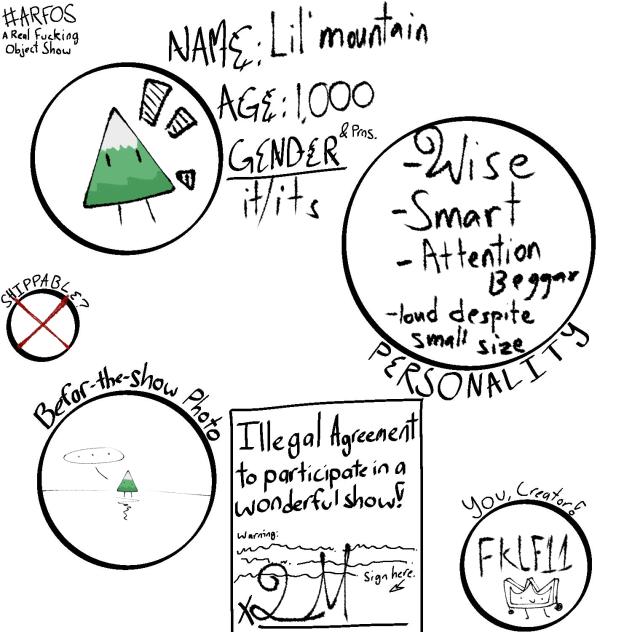 #ARFOS
A Real Fucking
Object Show
NAME: Lil' mountain
AGE: 1,000
GENDER & Prns.
it/its
-Wise
-Smart
-Attention
Beggar
-loud despite
small size
PERSONALITY
SHIPPABLE?
Befor-the-show Photo
...
Illegal Agreement
to participate in a
wonderful show!
Warning:
Sign here.
X
YOU, Creator!
FKLF11